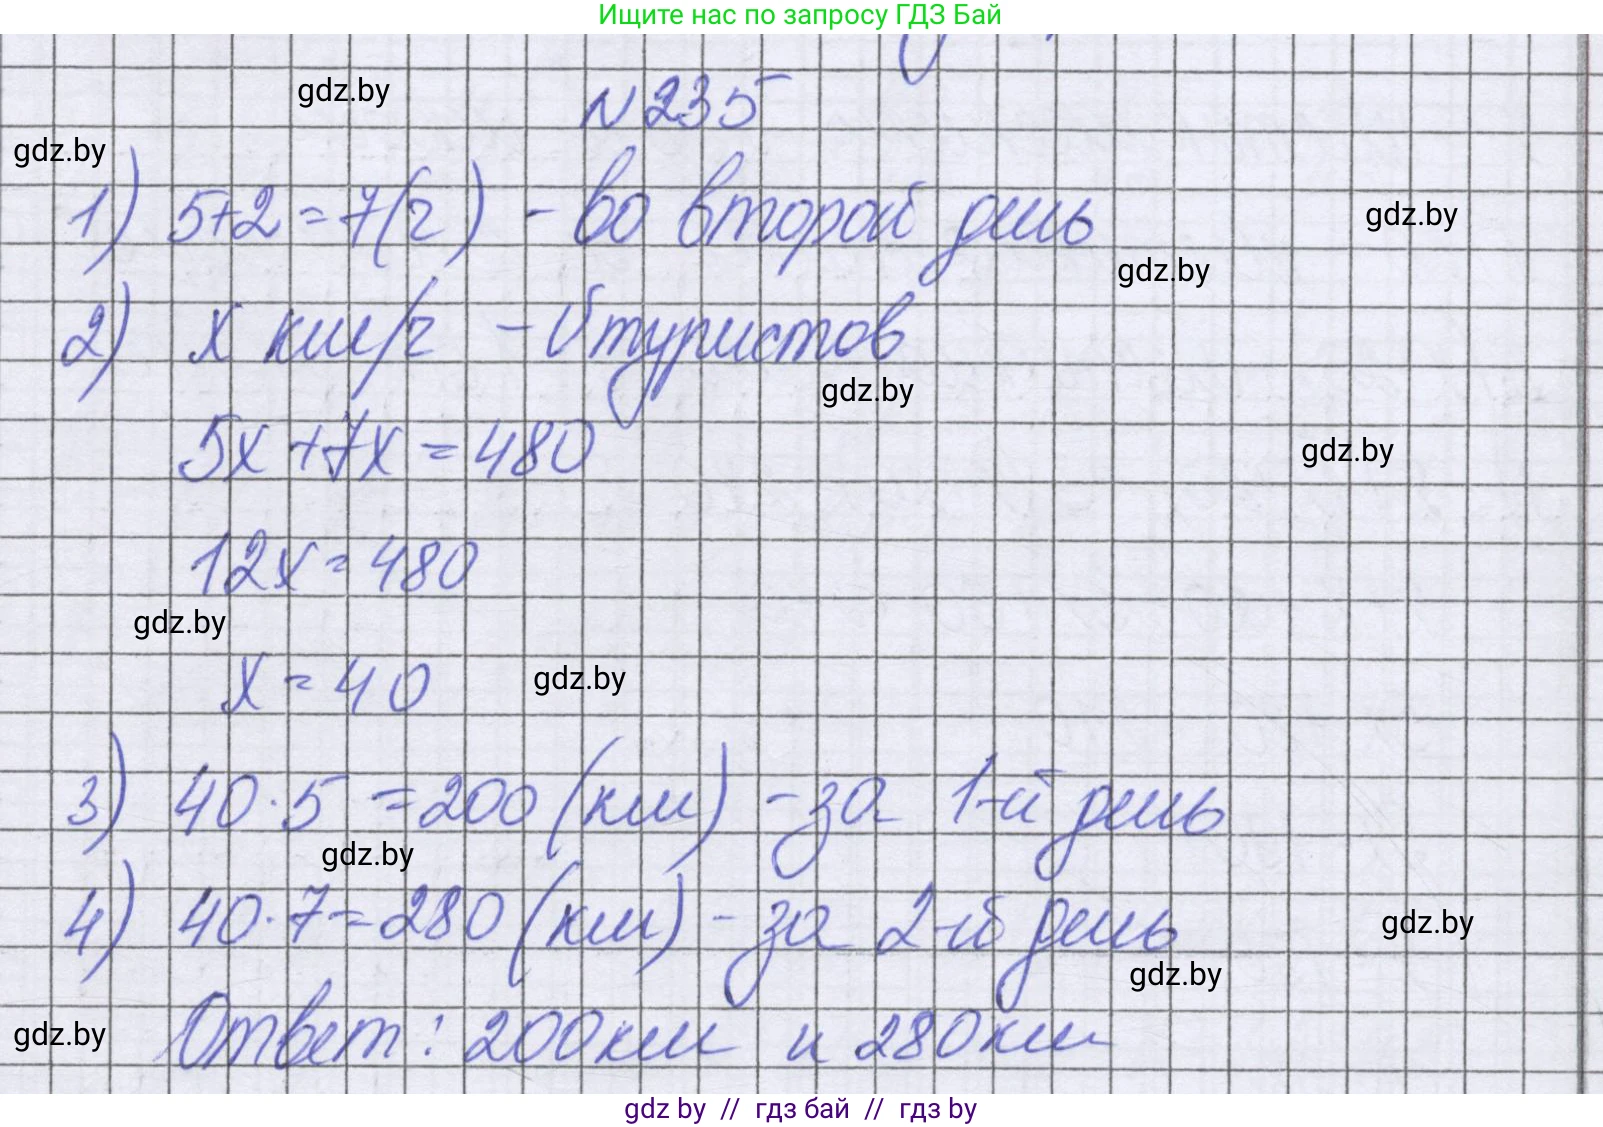 Ищите нас по запросу ГДЗ Бай
gdz.by
№ 235
gdz.by
1) 5+2=7(ч) - во второй день
gdz.by
gdz.by
2) х км/ч - υ туристов
gdz.by
5х+7х=480
gdz.by
12х=480
gdz.by
х=40
gdz.by
3) 40·5=200(км) - за 1-й день
gdz.by
4) 40·7=280(км) - за 2-й день
gdz.by
gdz.by
Ответ: 200км и 280км
gdz.by
gdz by // гдз бай // гдз by